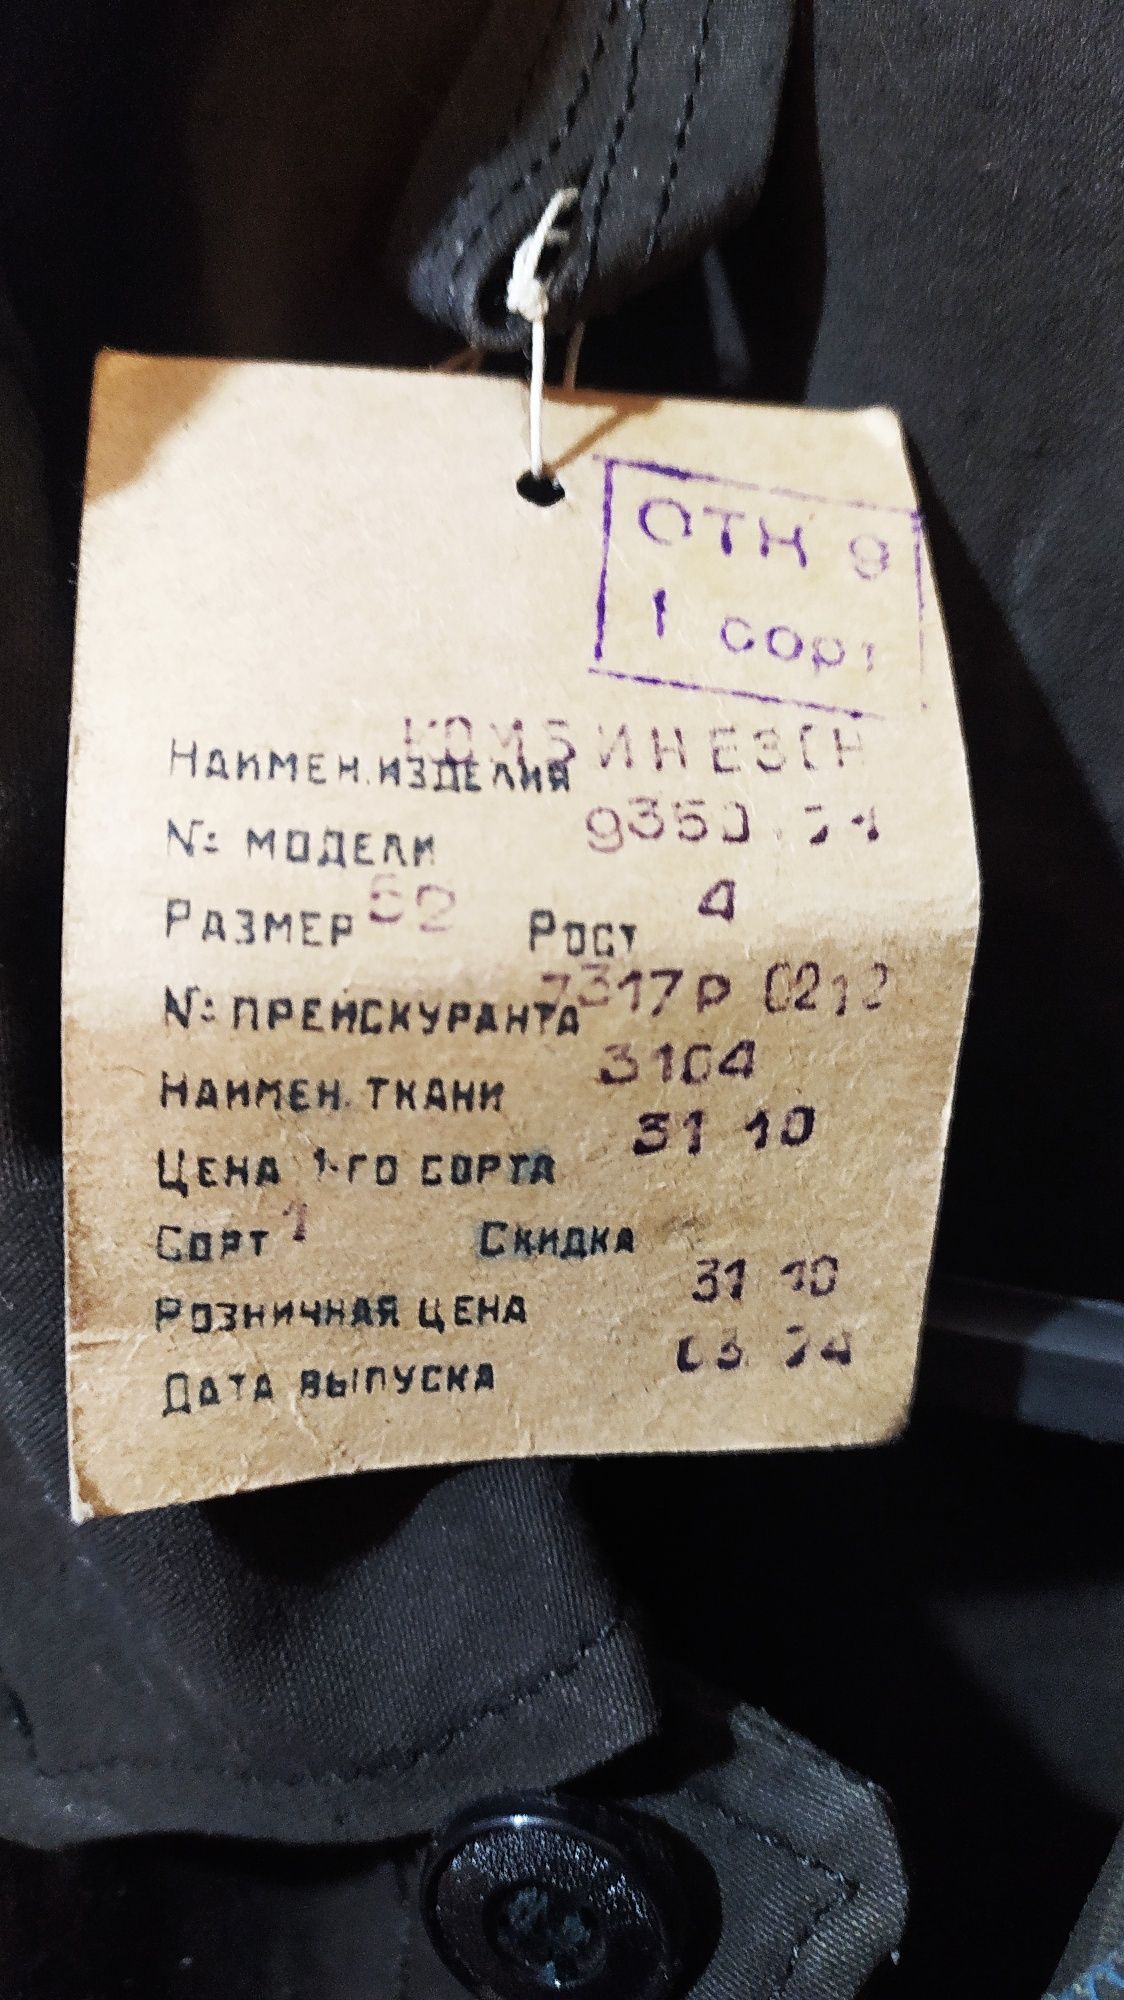 ОТН 9
1 сорт
НАИМЕН. ИЗДЕЛИЯ КОМБИНЕЗОН
№ МОДЕЛИ 9350
РАЗМЕР 52 РОСТ 4
№ ПРЕЙСКУРАНТА 7317Р 0212
НАИМЕН. ТКАНИ 3104
ЦЕНА 1-ГО СОРТА 31 10
СОРТ 1 СКИДКА
РОЗНИЧНАЯ ЦЕНА 31 10
ДАТА ВЫПУСКА 03 74